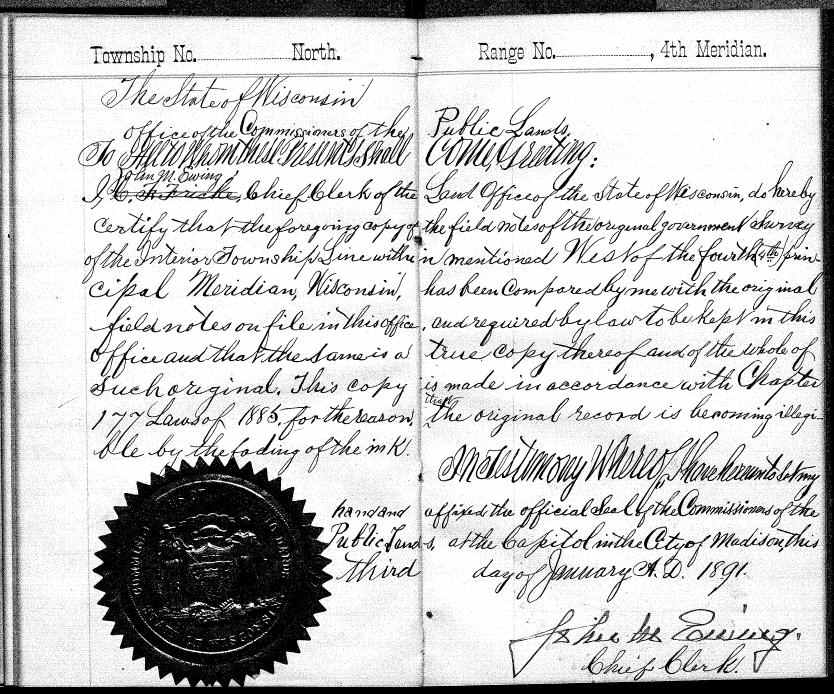 Township No. North. Range No. , 4th Meridian.
The State of Wisconsin
Office of the Commissioners of the Public Lands,
To All to Whom these Presents shall Come, Greeting:
John M. Ewing
I, C. A. Fricke, Chief Clerk of the Land Office of the State of Wisconsin, do hereby
certify that the foregoing copy of the field notes of the original government survey
of the Interior Township Line within mentioned West of the fourth 4th prin-
cipal Meridian, Wisconsin, has been compared by me with the original
field notes on file in this office, and required by law to be kept in this
office and that the same is a true copy thereof and of the whole of
such original. This copy is made in accordance with Chapter
that
177 Laws of 1885, for the reason, the original record is becoming illegi-
ble by the fading of the ink.
In Testimony Whereof, I have hereunto set my
hand and affixed the official Seal of the Commissioners of the
Public Lands, at the Capitol in the City of Madison, this
third day of January A.D. 1891.
John M Ewing.
Chief Clerk.